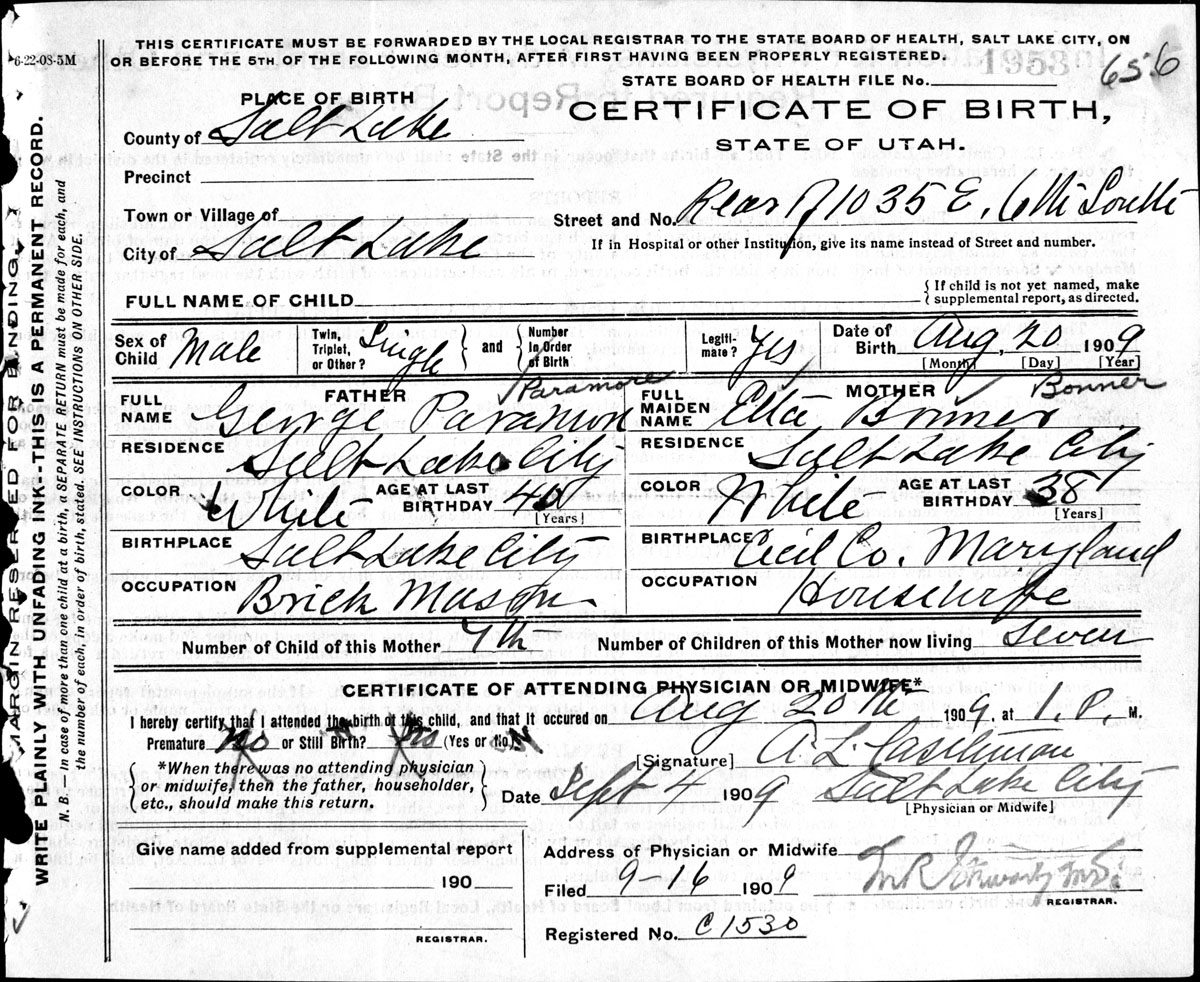 THIS CERTIFICATE MUST BE FORWARDED BY THE LOCAL REGISTRAR TO THE STATE BOARD OF HEALTH, SALT LAKE CITY, ON
OR BEFORE THE 5TH OF THE FOLLOWING MONTH, AFTER FIRST HAVING BEEN PROPERLY REGISTERED.
6-22-08-5M
STATE BOARD OF HEALTH FILE No. 656
PLACE OF BIRTH
CERTIFICATE OF BIRTH,
STATE OF UTAH.
County of Salt Lake
Precinct
Town or Village of
Street and No. Rear of 1035 E. 6th South
City of Salt Lake
If in Hospital or other Institution, give its name instead of Street and number.
FULL NAME OF CHILD
{If child is not yet named, make
supplemental report, as directed.
Sex of Child Male
Twin, Triplet, or Other? Single
and Number In Order of Birth
Legiti-mate? Yes
Date of Birth Aug, 20 1909
[Month] [Day] [Year]
FATHER Paramore
FULL NAME George Paramon
MOTHER Bonner
FULL MAIDEN NAME Etta Bonner
RESIDENCE Salt Lake City
RESIDENCE Salt Lake City
COLOR White AGE AT LAST BIRTHDAY 40 [Years]
COLOR White AGE AT LAST BIRTHDAY 38 [Years]
BIRTHPLACE Salt Lake City
BIRTHPLACE Cecil Co. Maryland
OCCUPATION Brick Mason
OCCUPATION Housewife
Number of Child of this Mother 7th Number of Children of this Mother now living Seven
CERTIFICATE OF ATTENDING PHYSICIAN OR MIDWIFE*
I hereby certify that I attended the birth of this child, and that it occured on Aug 20th 1909, at 1.P.M.
Premature No or Still Birth? (Yes or No)
[Signature] A. L. Castleman
{*When there was no attending physician
or midwife, then the father, householder,
etc., should make this return.}
Date Sept 4 1909 Salt Lake City
[Physician or Midwife]
Give name added from supplemental report
190
REGISTRAR.
Address of Physician or Midwife
Filed 9 16 1909
REGISTRAR.
Registered No. C1530
MARGIN RESERVED FOR BINDING.
WRITE PLAINLY WITH UNFADING INK-THIS IS A PERMANENT RECORD.
N. B. In case of more than one child at a birth, a SEPARATE RETURN must be made for each, and
the number of each, in order of birth, stated. SEE INSTRUCTIONS ON OTHER SIDE.